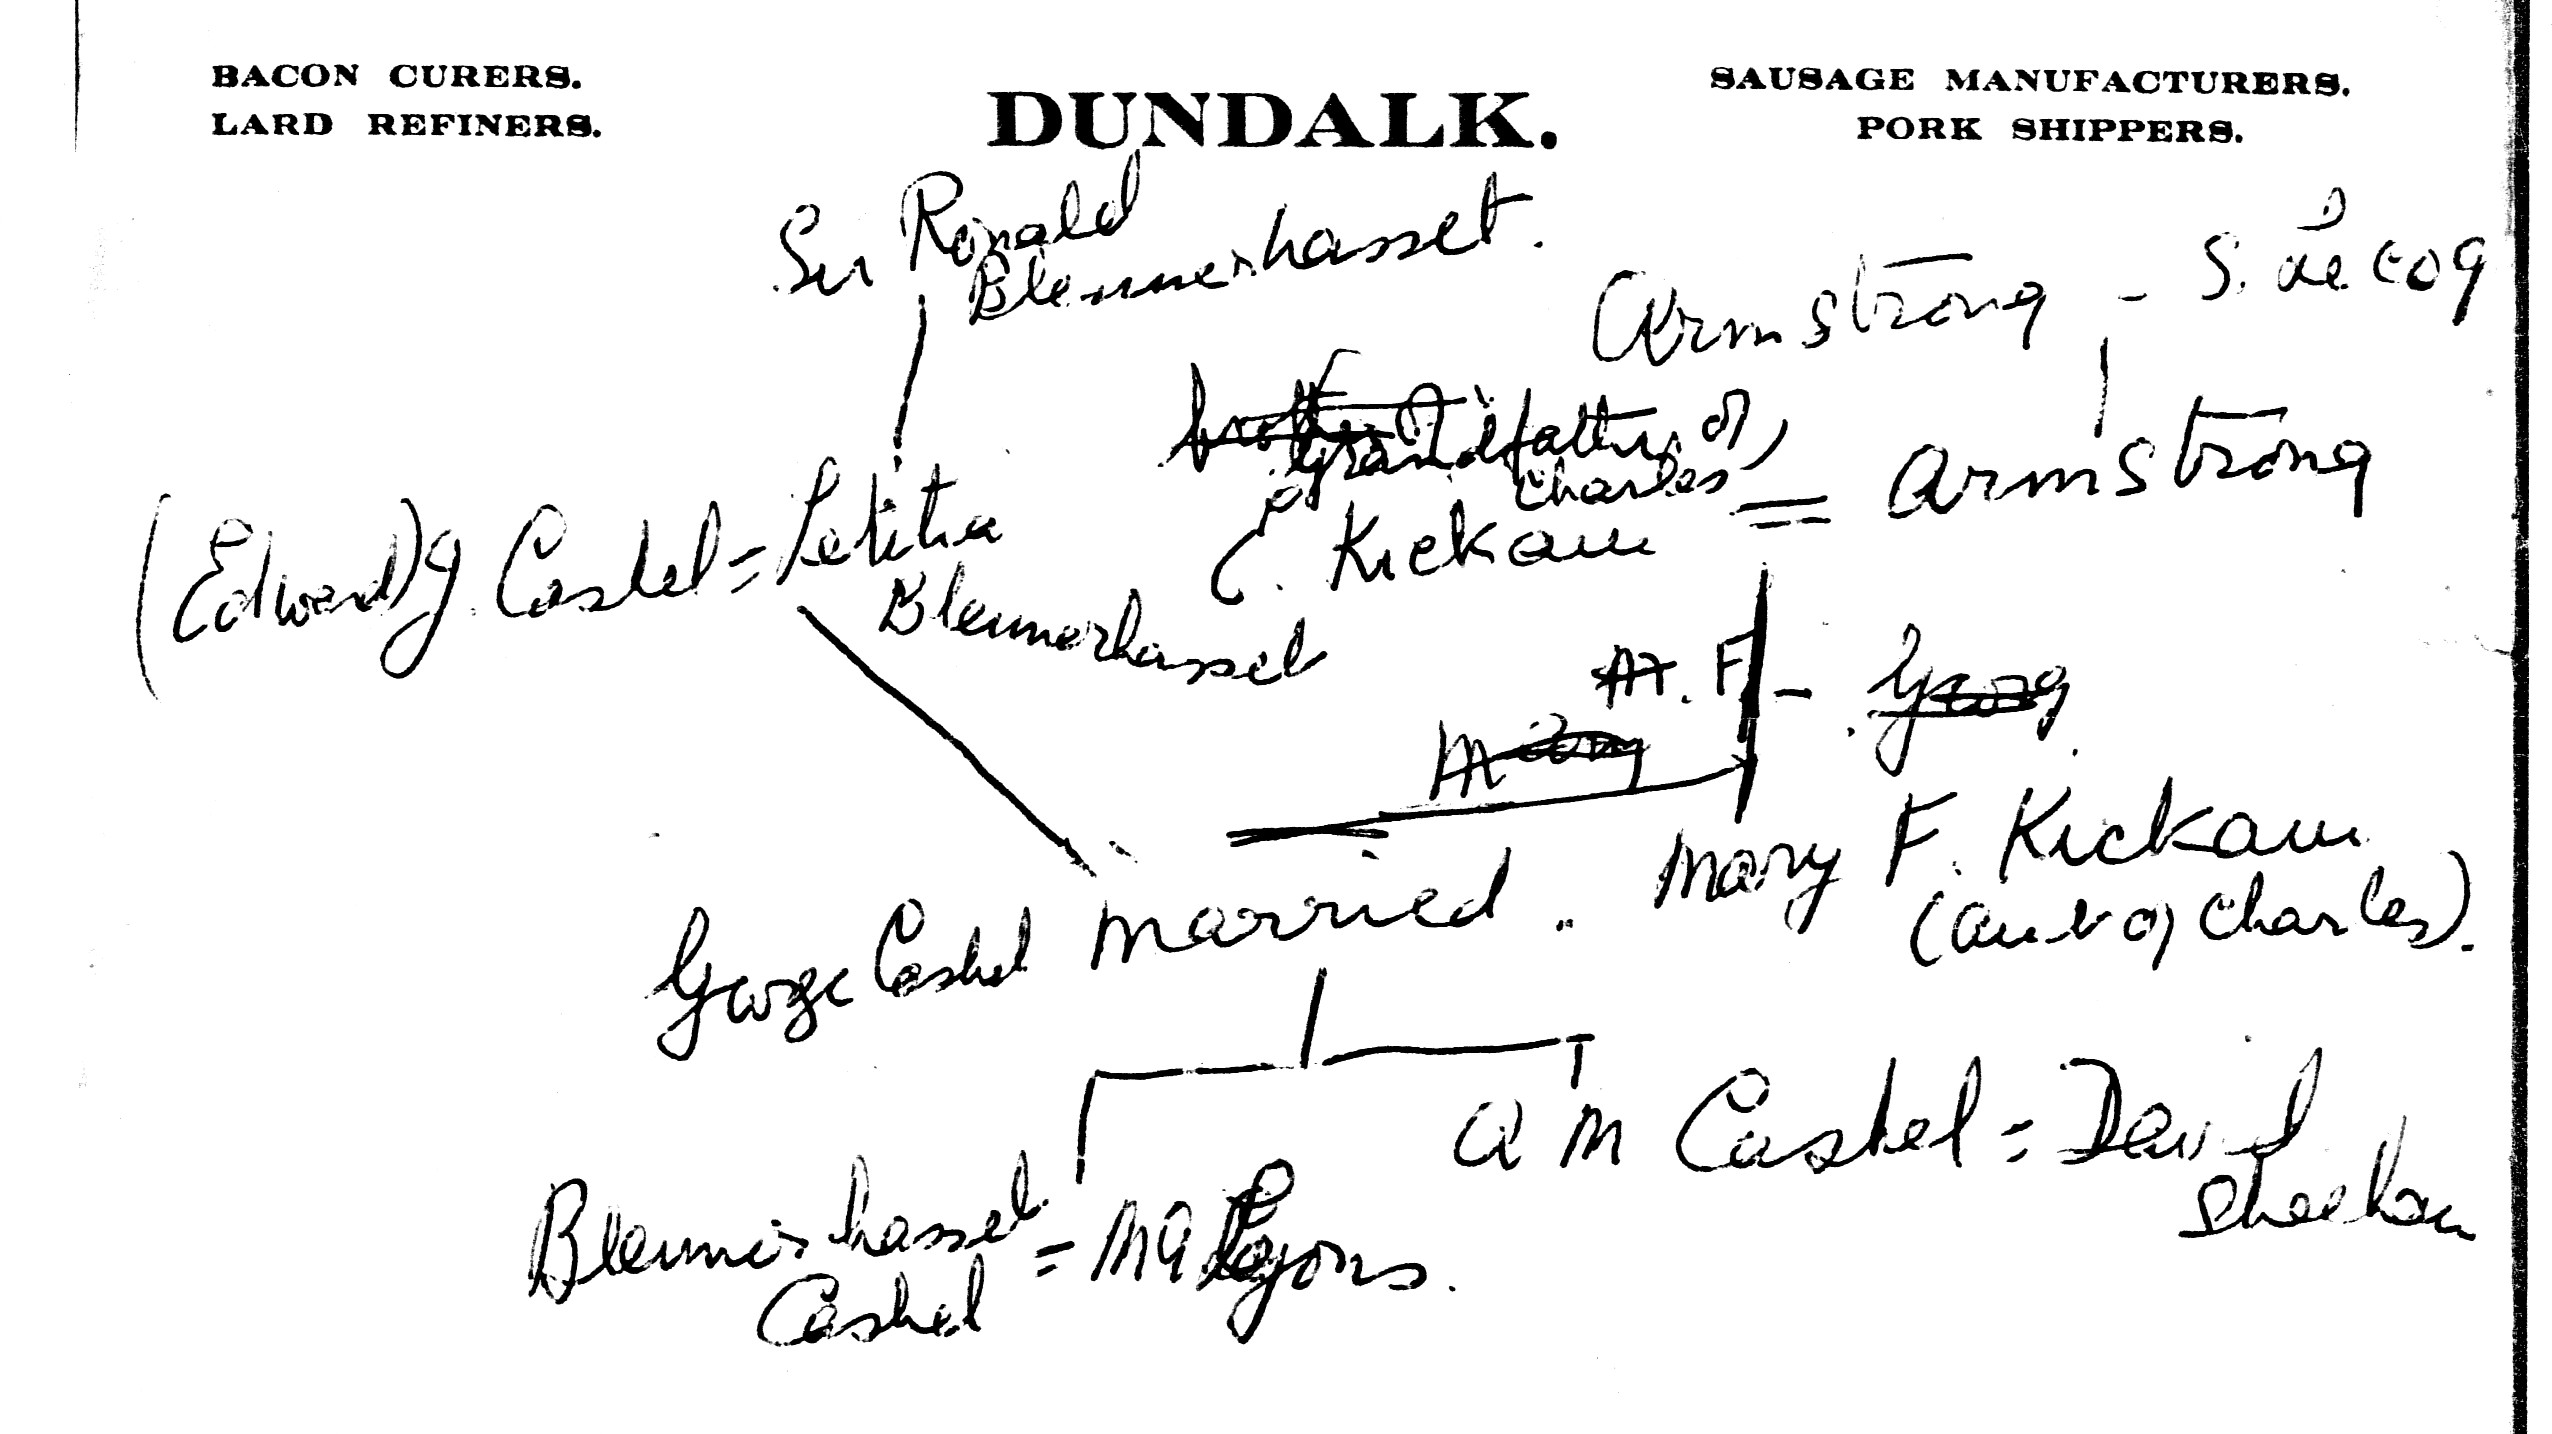 BACON CURERS.
LARD REFINERS.
DUNDALK.
SAUSAGE MANUFACTURERS.
PORK SHIPPERS.
Sir Ronald
Blennerhasset.
Armstrong - S. de coq
grandfather of
Charles
(Edward) J. Cashel = Letitia
Blennerhasset
C. Kickam = Armstrong
M. F. -
George Cashel married Mary F. Kickam
(aunt of Charles).
a M Cashel = David
Sheehan
Blennerhasset
Cashel = Ma Lyons.